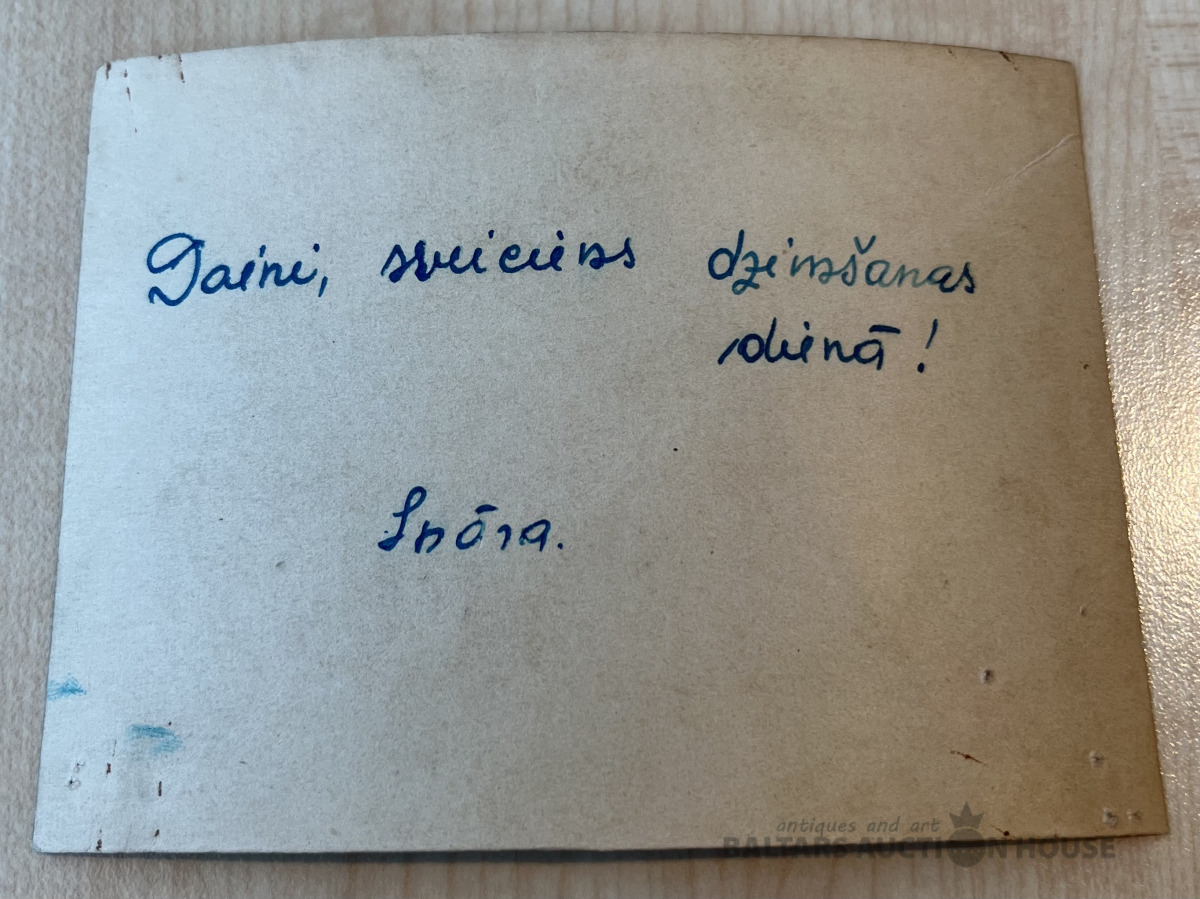 Daini, sveiciens dzimšanas
dienā!
Spāra.
antiques and art
BALTARS AUCTION HOUSE